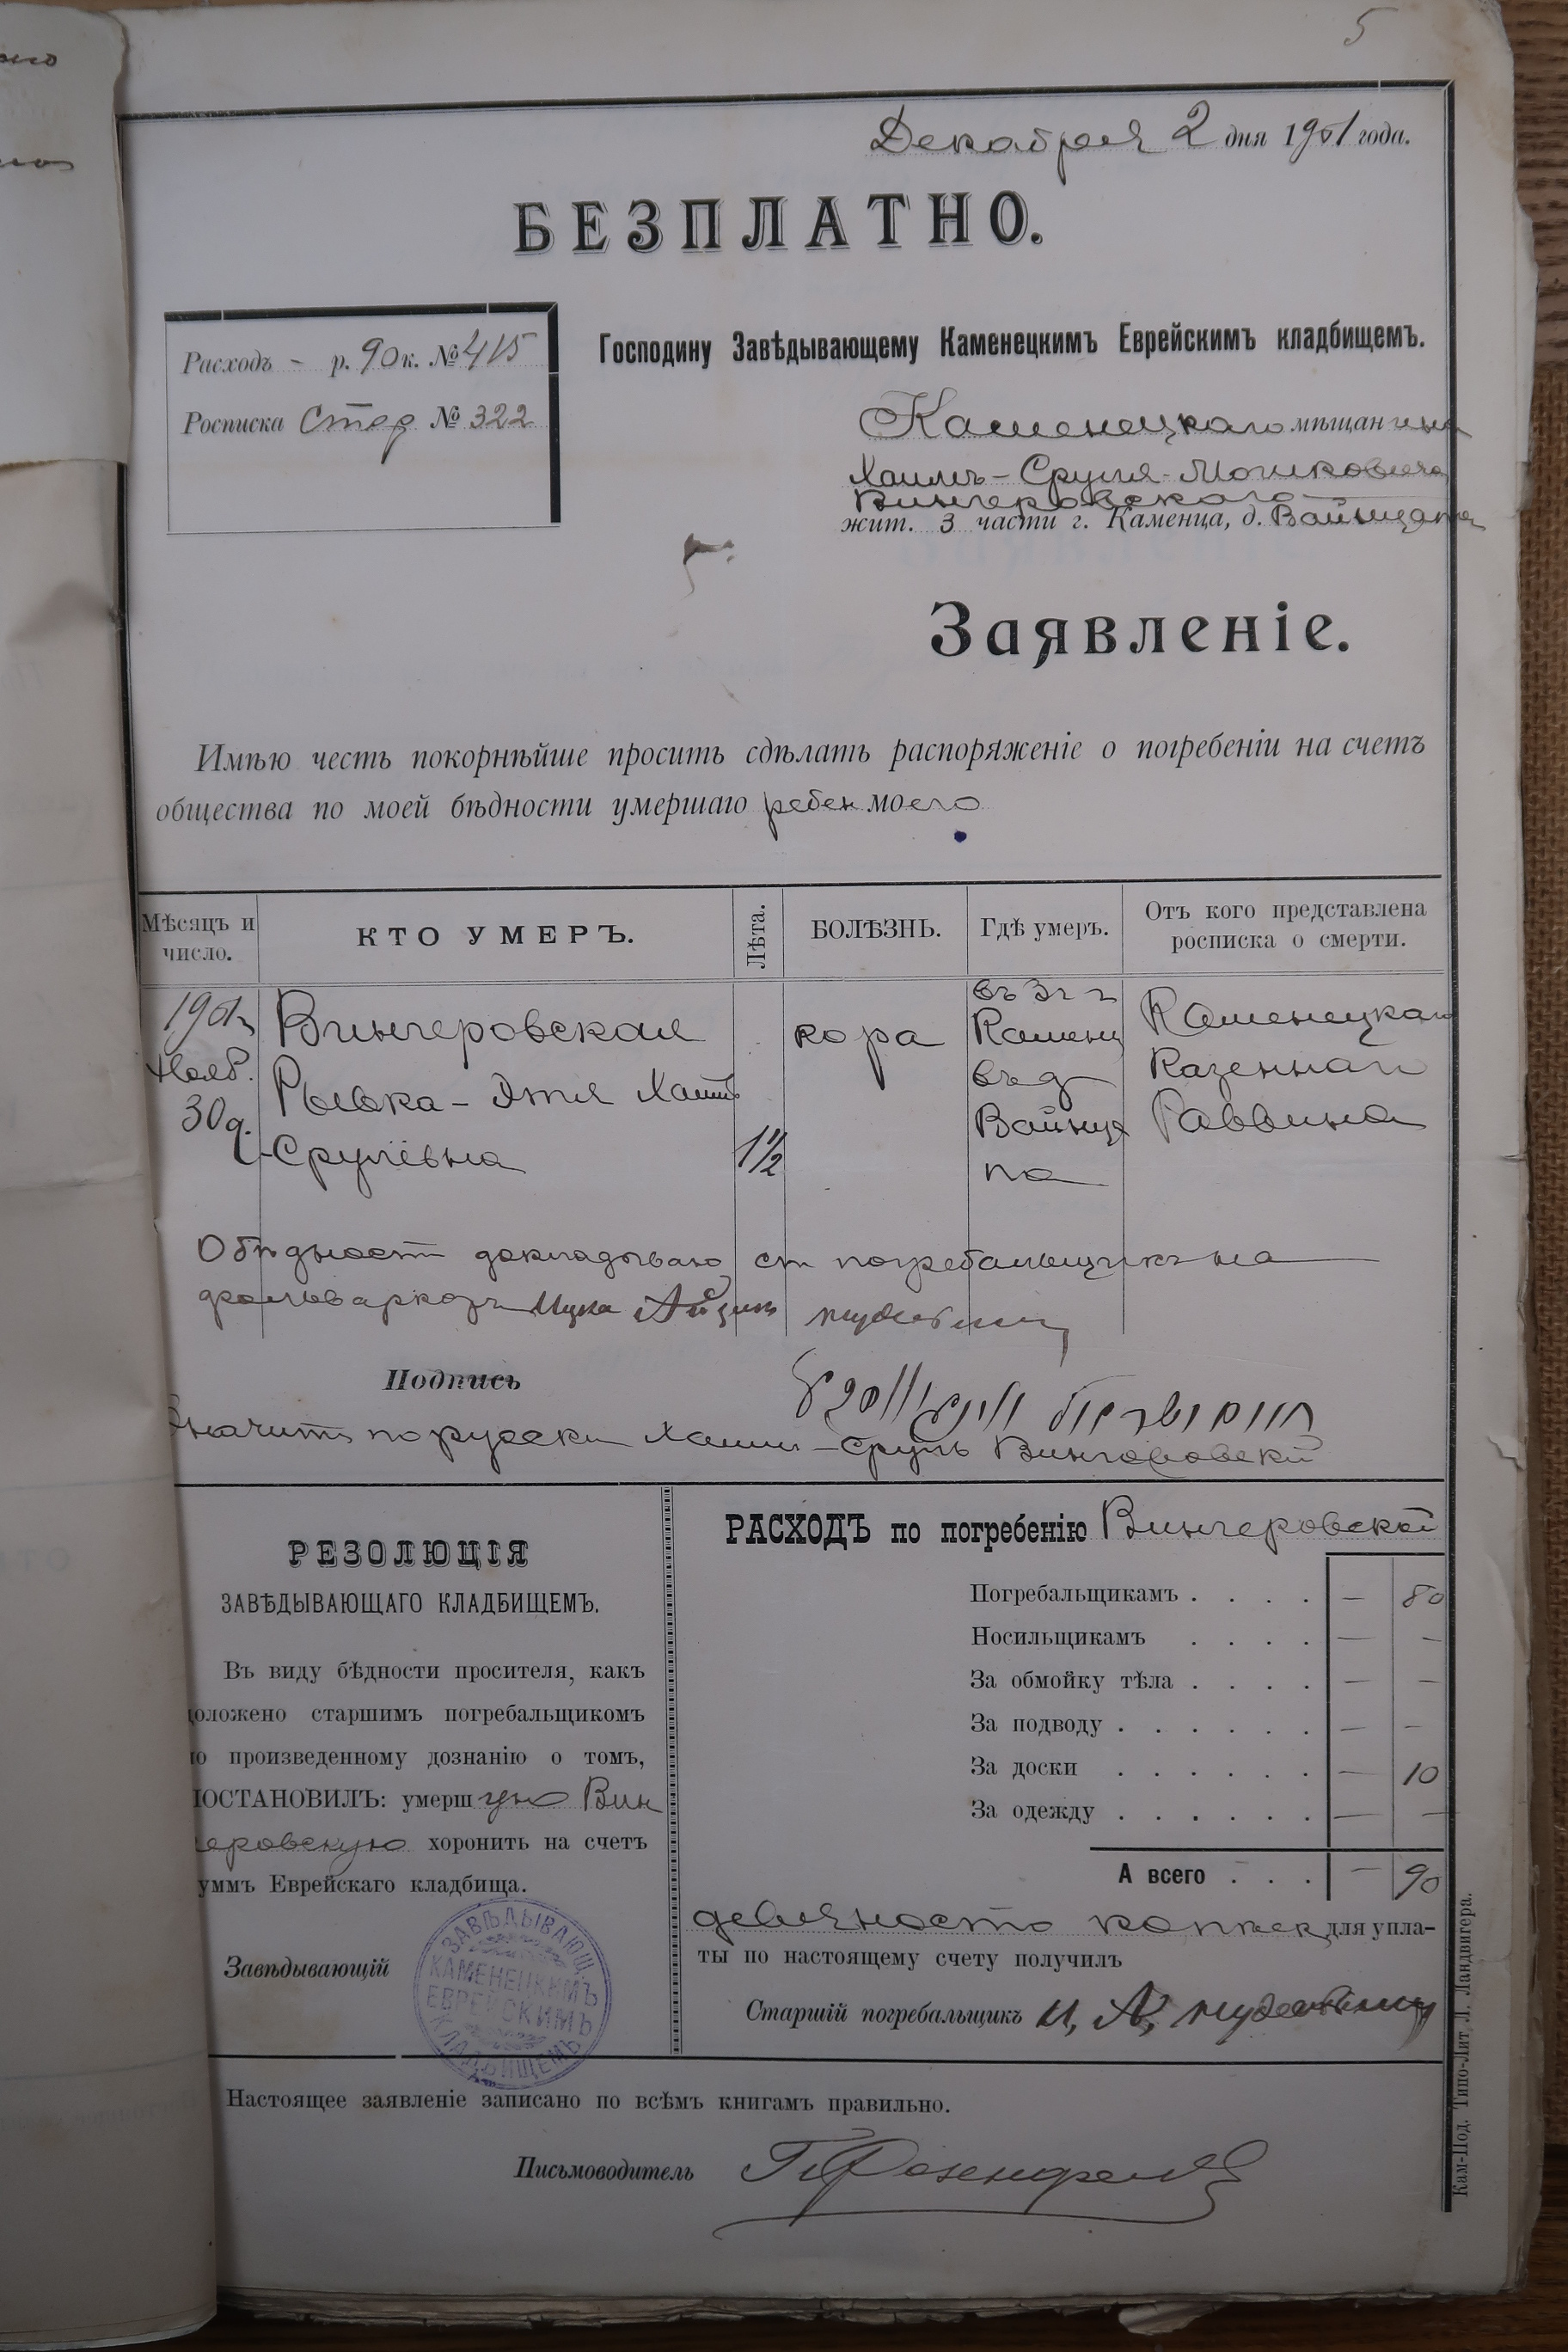 5
Декабря 2 дня 1901 года.
БЕЗПЛАТНО.
Расходъ – р. 90 к. № 415
Росписка № 322
Господину Завѣдывающему Каменецкимъ Еврейскимъ кладбищемъ.
Каменецкаго мѣщанина
Хаимъ-Сруля-Мошковича
Вингеровскаго
жит. 3 части г. Каменца, д. Вайнцапа
Заявленіе.
Имѣю честь покорнѣйше просить сдѣлать распоряженіе о погребеніи на счетъ
общества по моей бѣдности умершаго ребен моего
Мѣсяцъ и число.
КТО УМЕРЪ.
Лѣта.
БОЛѢЗНЬ.
Гдѣ умеръ.
Отъ кого представлена росписка о смерти.
1901 г.
Нояб.
30 д.
Вингеровская
Рывка-Этя Хаимъ
-Срулевна
1 1/2
кора
въ 3 ч г
Каменц
въ д
Вайнца
па
Каменецкаго
Казеннаго
Раввина
О бѣдност докладываю ст погребальщикъ на
фольваркахъ Ицка
Подпись
Значитъ по русски Хаимъ-Сруль Вингеровскій
РЕЗОЛЮЦІЯ
ЗАВѢДЫВАЮЩАГО КЛАДБИЩЕМЪ.
Въ виду бѣдности просителя, какъ
доложено старшимъ погребальщикомъ
по произведенному дознанію о томъ,
ПОСТАНОВИЛЪ: умершую Вин
геровскую хоронить на счетъ
суммъ Еврейскаго кладбища.
Завѣдывающій
ЗАВѢДЫВАЮЩ.
КАМЕНЕЦКИМЪ
ЕВРЕЙСКИМЪ
КЛАДБИЩЕМЪ
РАСХОДЪ по погребенію Вингеровской
Погребальщикамъ . . . . — 80
Носильщикамъ . . . . — —
За обмойку тѣла . . . . — —
За подводу . . . . . . — —
За доски . . . . . . — 10
За одежду . . . . . . — —
А всего . . . — 90
девяносто копѣек для упла-
ты по настоящему счету получилъ
Старшій погребальщикъ И. А.
Настоящее заявленіе записано по всѣмъ книгамъ правильно.
Письмоводитель
Кам-Под. Типо-Лит. Л. Ландвигера.